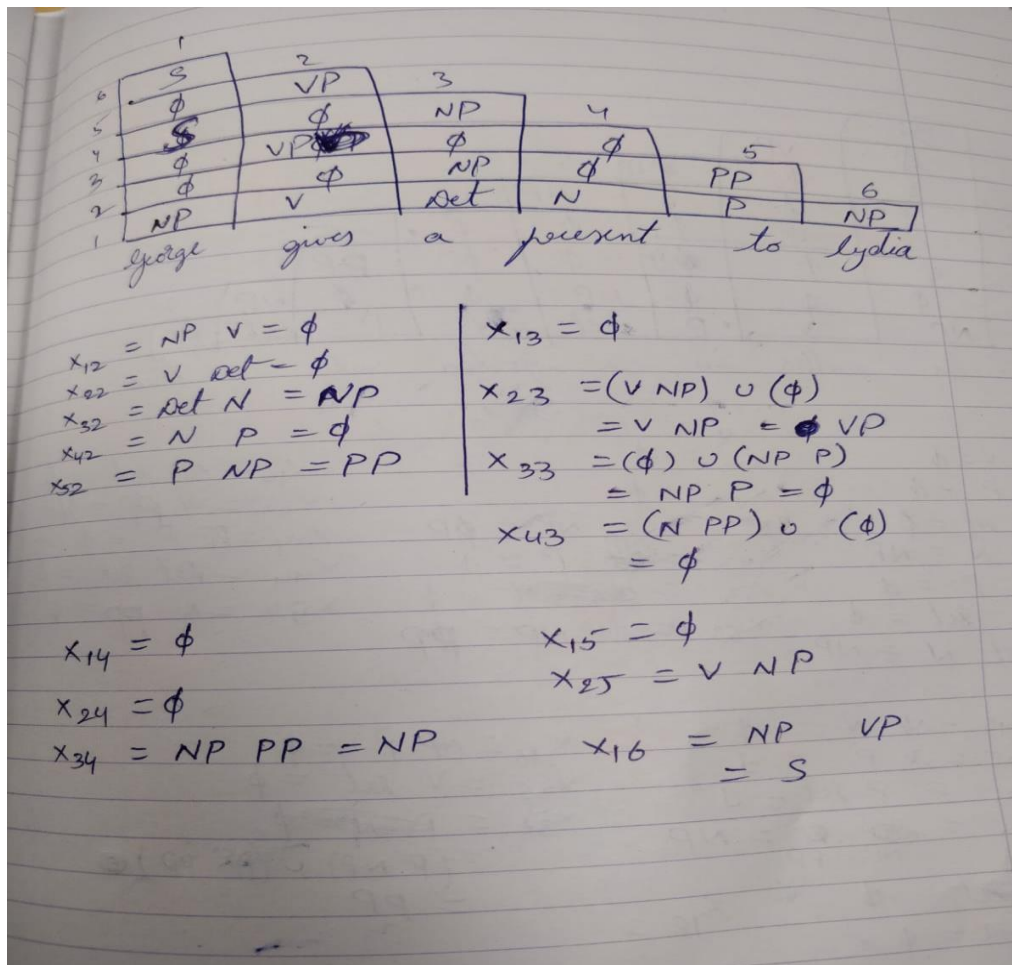 1
6 S 2
5 φ VP 3
4 S φ NP 4
3 φ VP φ φ 5
2 φ φ NP φ PP 6
1 NP V Det N P NP
George gives a present to lydia
x12 = NP V = φ
x22 = V Det = φ
x32 = Det N = NP
x42 = N P = φ
x52 = P NP = PP
x13 = φ
x23 = (V NP) ∪ (φ)
= V NP = VP
x33 = (φ) ∪ (NP P)
= NP P = φ
x43 = (N PP) ∪ (φ)
= φ
x14 = φ
x24 = φ
x34 = NP PP = NP
x15 = φ
x25 = V NP
x16 = NP VP
= S